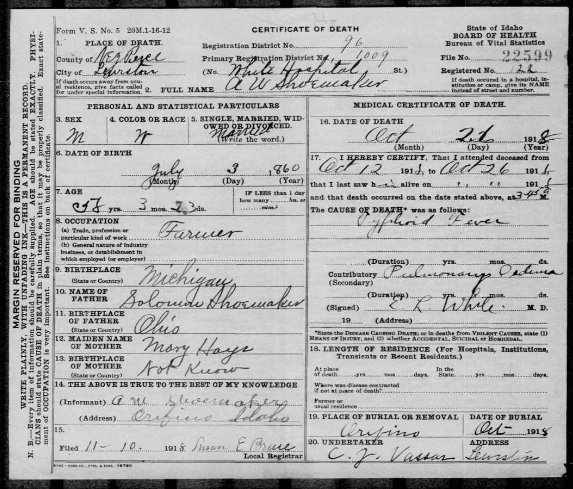 Form V. S. No. 5 20M.1-16-12
CERTIFICATE OF DEATH
State of Idaho
BOARD OF HEALTH
Bureau of Vital Statistics
1. PLACE OF DEATH.
County of Nez Perce
City of Lewiston
If death occurs away from usual residence, give facts called for under special information.
Registration District No. 96
Primary Registration District No. 1009
(No. White Hospital St.)
File No. 22599
Registered No. 22
If death occurred in a hospital, institution, or camp, give its NAME instead of street and number.
2. FULL NAME A W Shoemaker
PERSONAL AND STATISTICAL PARTICULARS
3. SEX
M
4. COLOR OR RACE
W
5. SINGLE, MARRIED, WIDOWED OR DIVORCED.
Married
(Write the word.)
6. DATE OF BIRTH
July 3 1860
(Month) (Day) (Year)
7. AGE
58 yrs. 3 mos. 23 ds.
IF LESS than 1 day
how many hrs. or
min.?
8. OCCUPATION
(a) Trade, profession or particular kind of work
Farmer
(b) General nature of industry, business, or establishment in which employed (or employer)
9. BIRTHPLACE
(State or Country)
Michigan
10. NAME OF FATHER
Solomon Shoemaker
11. BIRTHPLACE OF FATHER
(State or Country)
Ohio
12. MAIDEN NAME OF MOTHER
Mary Hays
13. BIRTHPLACE OF MOTHER
(State or Country)
Not Know
14. THE ABOVE IS TRUE TO THE BEST OF MY KNOWLEDGE
(Informant) A W Shoemaker
(Address) Orifino Idaho
15.
Filed 11-10. 1918 Susan E Bruce
Local Registrar
MEDICAL CERTIFICATE OF DEATH.
16. DATE OF DEATH
Oct 26 1918
(Month) (Day) (Year)
17. I HEREBY CERTIFY, That I attended deceased from
Oct 12 1918, to Oct 26 1918
that I last saw h im alive on " " 1918
and that death occurred on the date stated above, at 3-45
The CAUSE OF DEATH* was as follows:
Typhoid Fever
(Duration) yrs. mos. ds.
Contributory Pulmonary Oedema
(Secondary)
(Duration) yrs. mos. ds.
(Signed) E L White M. D.
19 (Address)
*State the DISEASE CAUSING DEATH; or in deaths from VIOLENT CAUSES, state (1) MEANS OF INJURY, and (2) whether ACCIDENTAL, SUICIDAL or HOMICIDAL.
18. LENGTH OF RESIDENCE (For Hospitals, Institutions, Transients or Recent Residents.)
At place of death yrs. mos. days. In the State yrs. mos. ds.
Where was disease contracted if not at place of death?
Former or usual residence
19. PLACE OF BURIAL OR REMOVAL
Orifino
DATE OF BURIAL
Oct 1918
20. UNDERTAKER
C. J. Vassar
ADDRESS
Lewiston
MARGIN RESERVED FOR BINDING
WRITE PLAINLY, WITH UNFADING INK—THIS IS A PERMANENT RECORD.
N. B.—Every item of information should be carefully supplied. AGE should be stated EXACTLY. PHYSICIANS should state CAUSE OF DEATH in plain terms, so that it may be properly classified. Exact statement of OCCUPATION is very important. See instructions on back of certificate.